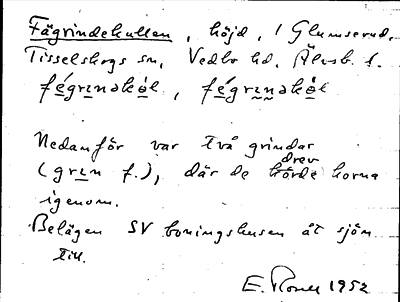 Fägrindekullen, höjd, i Glumserud,
Tisselskogs sn, Vedbo hd, Älvsb. l.
fégrɩnəkól, fégrɩnəkól
Nedanför var två grindar
(grɩn f.), där de drev korna
igenom.
Belägen SV boningshusen åt sjön
till.
E. 1952